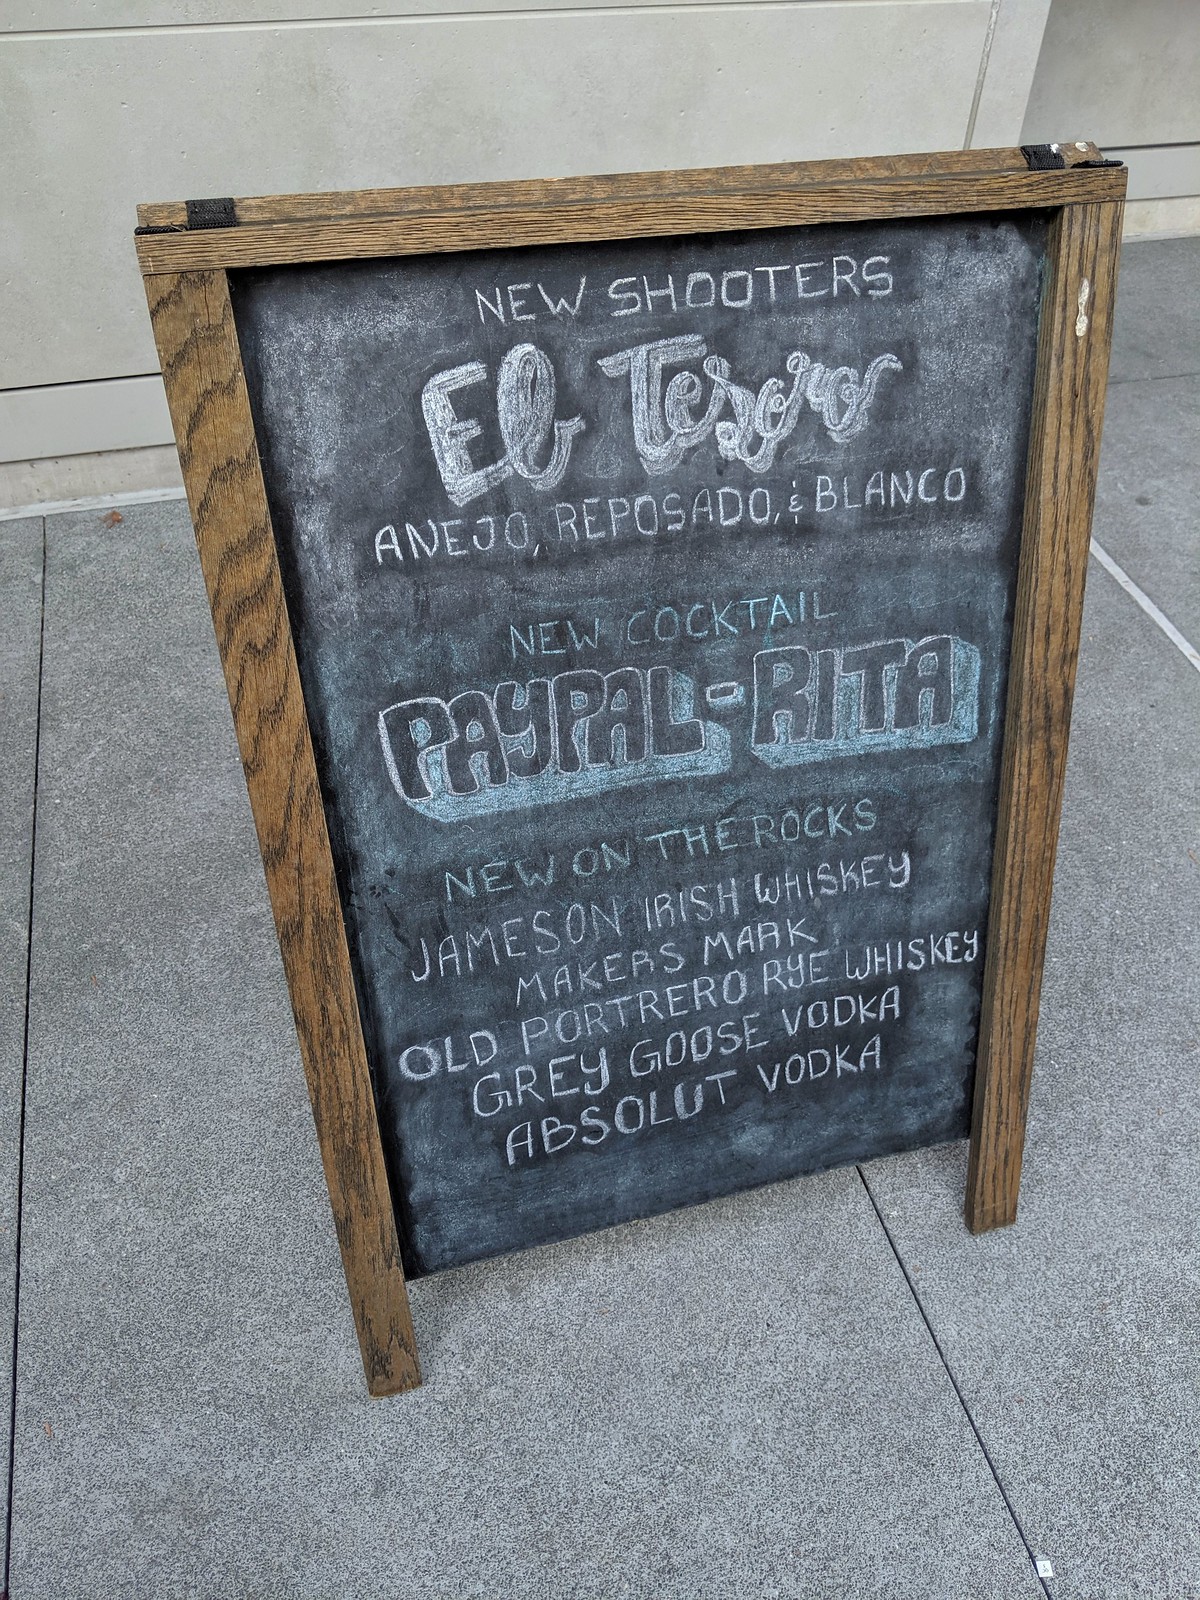 NEW SHOOTERS
El Tesoro
ANEJO, REPOSADO, & BLANCO
NEW COCKTAIL
PAYPAL-RITA
NEW ON THE ROCKS
JAMESON IRISH WHISKEY
MAKERS MARK
OLD PORTRERO RYE WHISKEY
GREY GOOSE VODKA
ABSOLUT VODKA